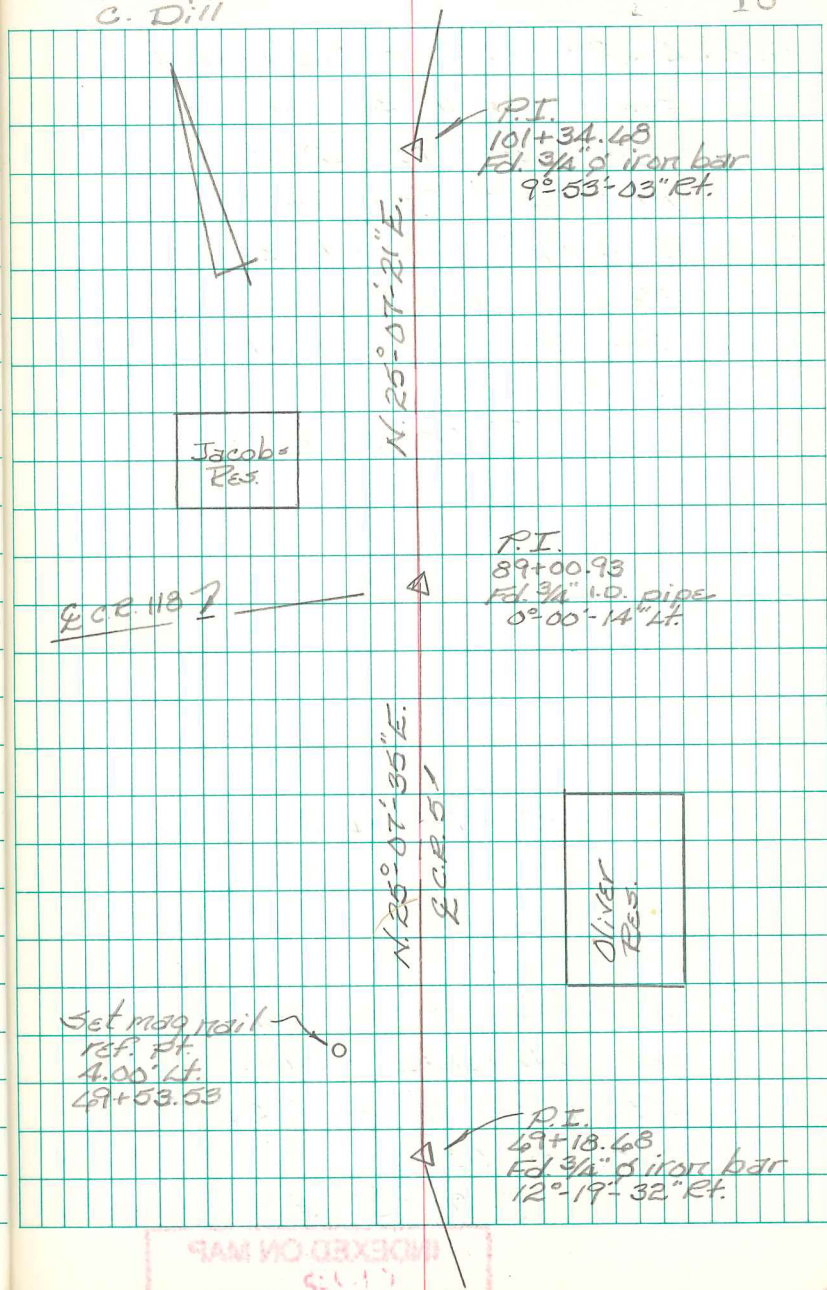 C. Dill
P.I.
101+34.48
Fd. 3/4" ø iron bar
9°-53'-03" Rt.
N. 25°-07'-21" E.
Jacobs
Res.
P.I.
89+00.93
Fd. 3/4" I.D. pipe
0°-00'-14" Lt.
℄ C.R. 118
N. 25°-07'-35" E.
℄ C.R. 51
Oliver
Res.
Set mag nail
ref. pt.
4.00' Lt.
49+53.53
P.I.
49+18.48
Fd. 3/4" ø iron bar
12°-19'-32" Rt.
INDEXED ON MAP